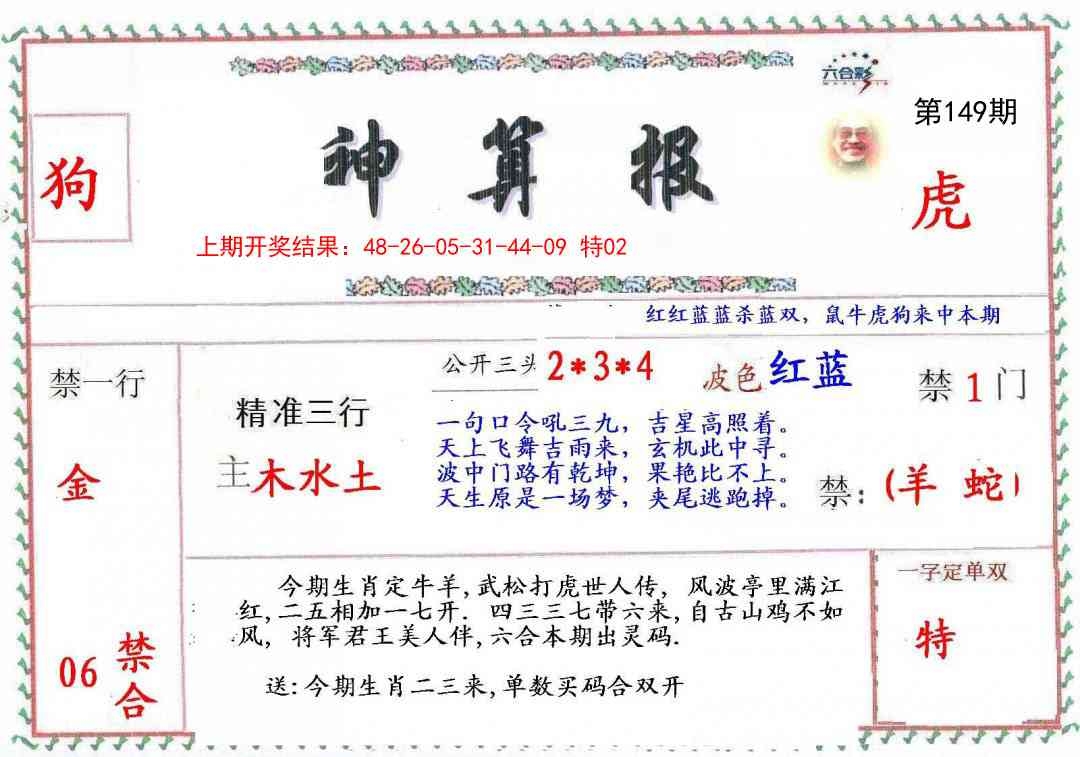 六合彩
第149期
狗
神算报
虎
上期开奖结果：48-26-05-31-44-09 特02
红红蓝蓝杀蓝双，鼠牛虎狗来中本期
禁一行
公开三头 2*3*4
波色 红蓝
禁1门
精准三行
一句口令吼三九，吉星高照着。
天上飞舞吉雨来，玄机此中寻。
波中门路有乾坤，果艳比不上。
天生原是一场梦，夹尾逃跑掉。
金
主木水土
禁：(羊 蛇)
今期生肖定牛羊,武松打虎世人传，风波亭里满江
红,二五相加一七开．四三三七带六来,自古山鸡不如
凤，将军君王美人伴,六合本期出灵码.
送:今期生肖二三来,单数买码合双开
一字定单双
特
06 禁合